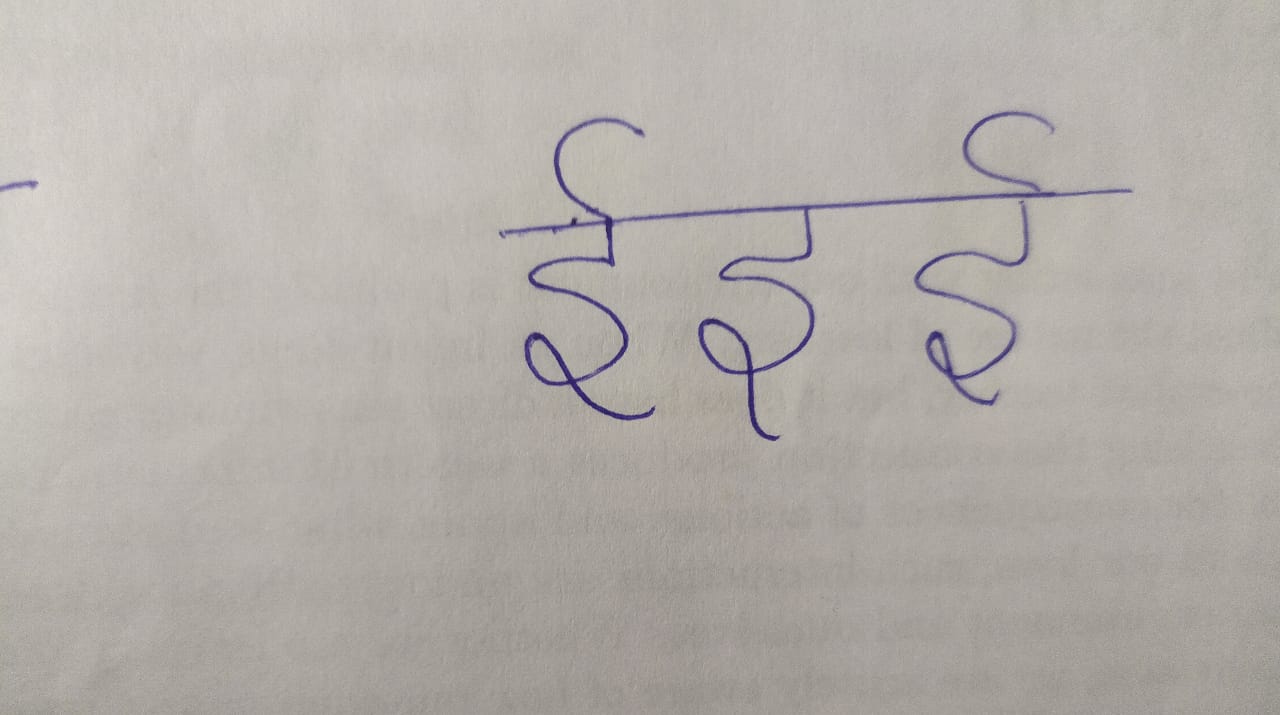 ईइई